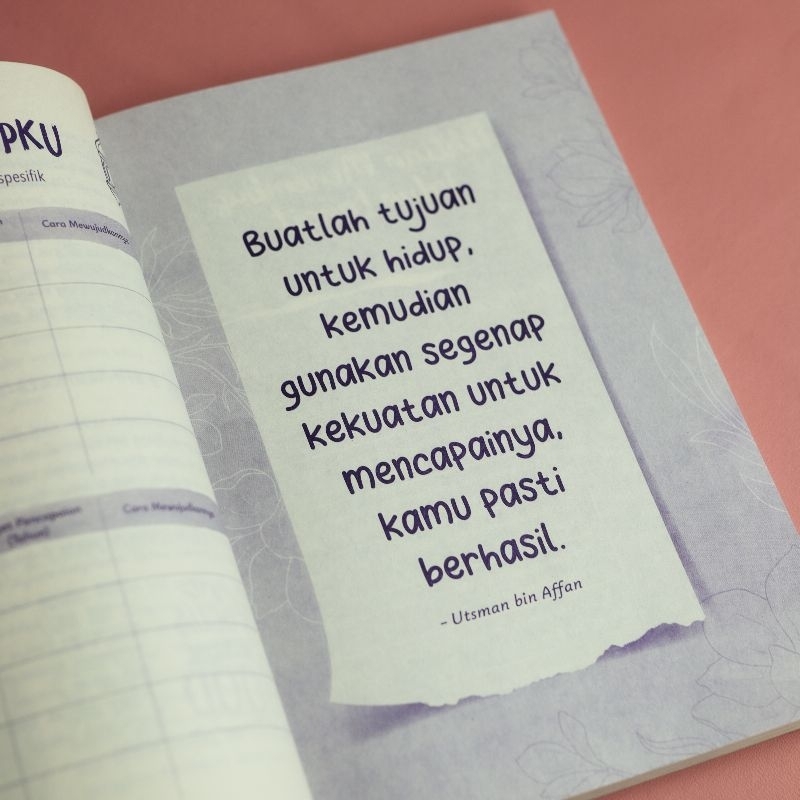 PKU
spesifik
Cara Mewujudkannya
Cara Mewujudkannya
(Tahun)
Buatlah tujuan
untuk hidup,
kemudian
gunakan segenap
kekuatan untuk
mencapainya,
kamu pasti
berhasil.
- Utsman bin Affan